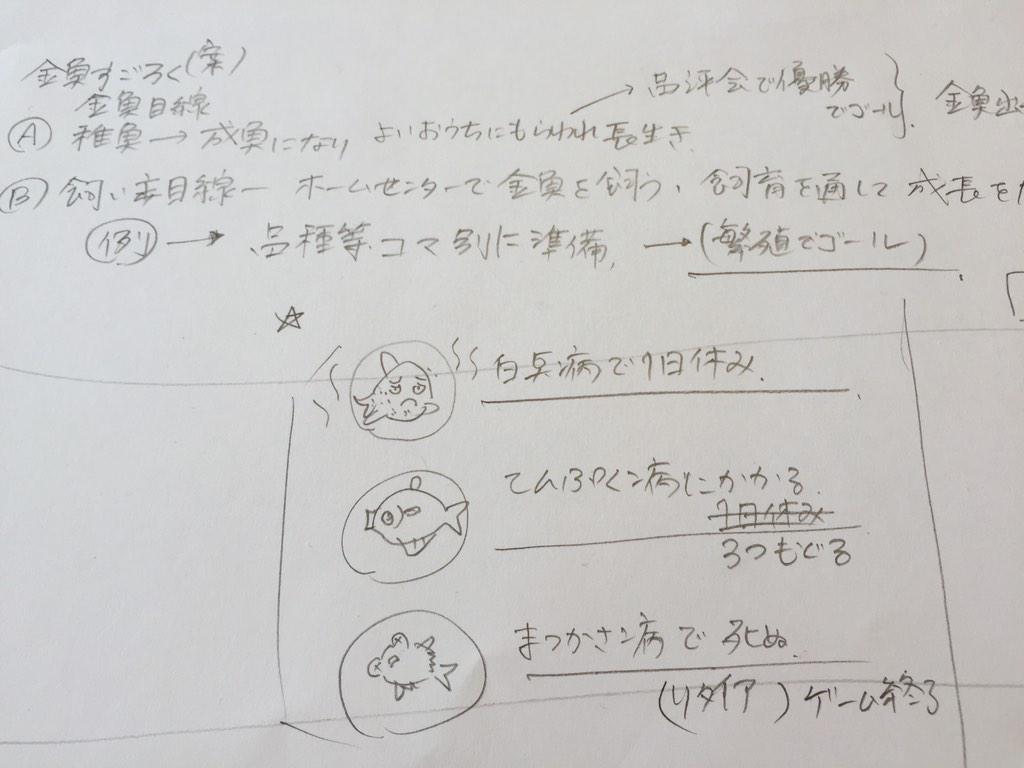 金魚すごろく(案)
金魚目線
Ⓐ 稚魚→成魚になり よいおうちにもらわれ長生き
→品評会で優勝
でゴール
金魚
Ⓑ 飼い主目線ー ホームセンターで金魚を飼う、飼育を通して成長を
例→ 品種等、コマ別に準備, →(繁殖でゴール).
☆
白点病で1日休み.
てんぷく病にかかる.
1日休み
3つもどる
まつかさ病で死ぬ.
(リタイア)ゲーム終了